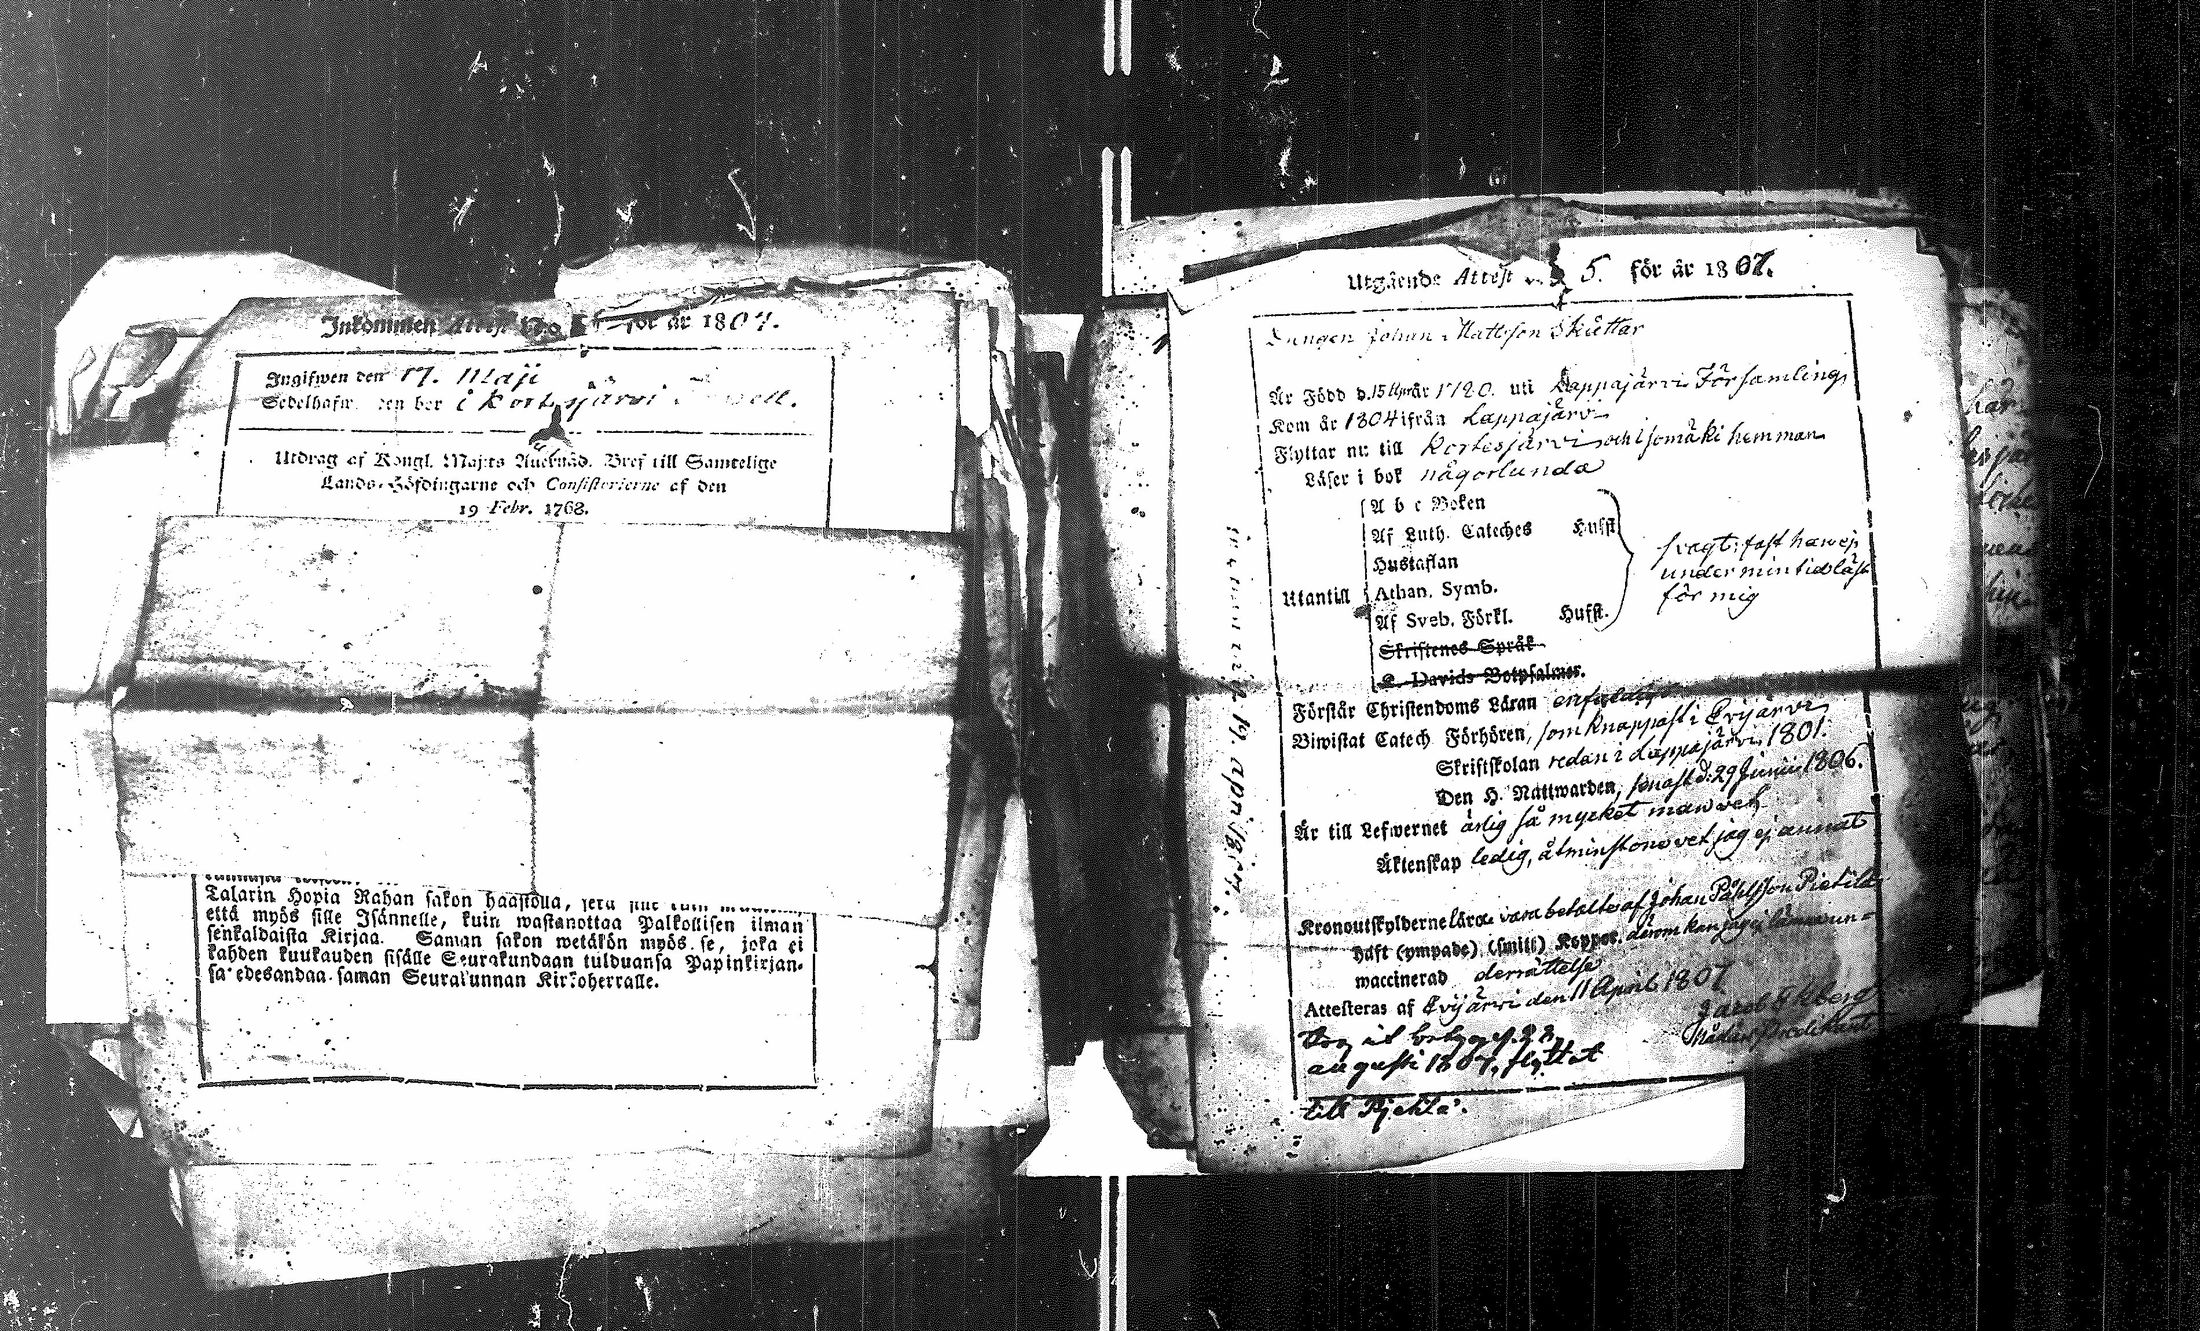 Inkommen Attest No för år 1807.
Ingifwen den 17. Maji
i Kortesjärvi
Utdrag af Kongl. Maj:ts Bref till Samtelige
Lands-Höfdingarne och Consistorierne af den
19 Febr. 1768.
Talarin Hopia Rahan sakon haastolla,
että myös sille Isännelle, kuin wastanottaa Palkollisen ilman
senkaldaista Kirjaa. Saman sakon wetäkön myös se, joka ei
kahden kuukauden sisälle Seurakundaan tulduansa Papinkirjan-
sa edesandaa saman Seurakunnan Kirkoherralle.
Utgående Attest 5. för år 1807.
Drängen Johan Mattsson Skuttar
Är Född d. 15 år uti Lappajärvi Församling,
Kom år 1804 ifrån Lappajärvi
Flyttar nu till Kortesjärvi och hemman
Läser i bok någorlunda
A b c Boken
Af Luth. Cateches Hufst.
Hustaflan
Utantill Athan. Symb.
Af Sveb. Förkl. Hufst.
Skriftenes Språk
K. Davids Botpsalmer.
svagt, fast han ej
under min tid läst
för mig
Förstår Christendoms Läran enfaldigt
Biwistat Catech Förhören, som knappast i Evijärvi
Skriftskolan redan i Lappajärvi, 1801.
Den H. Nattwarden, senast d. 29 Junii 1806.
Är till Lefwernet ärlig så mycket man vet
Äktenskap ledig, åtminstone vet jag ej annat
Kronoutskylderne lära vara betalte af Johan Påhlsson Pietilä
Haft (ympade) (smitt) Koppor. derom kan jag ej lämna un=
vaccinerad derrättelse
Attesteras af Evijärvi den 11 April 1807
Jacob Ekberg
Predikant
augusti 1807, flyttat
till